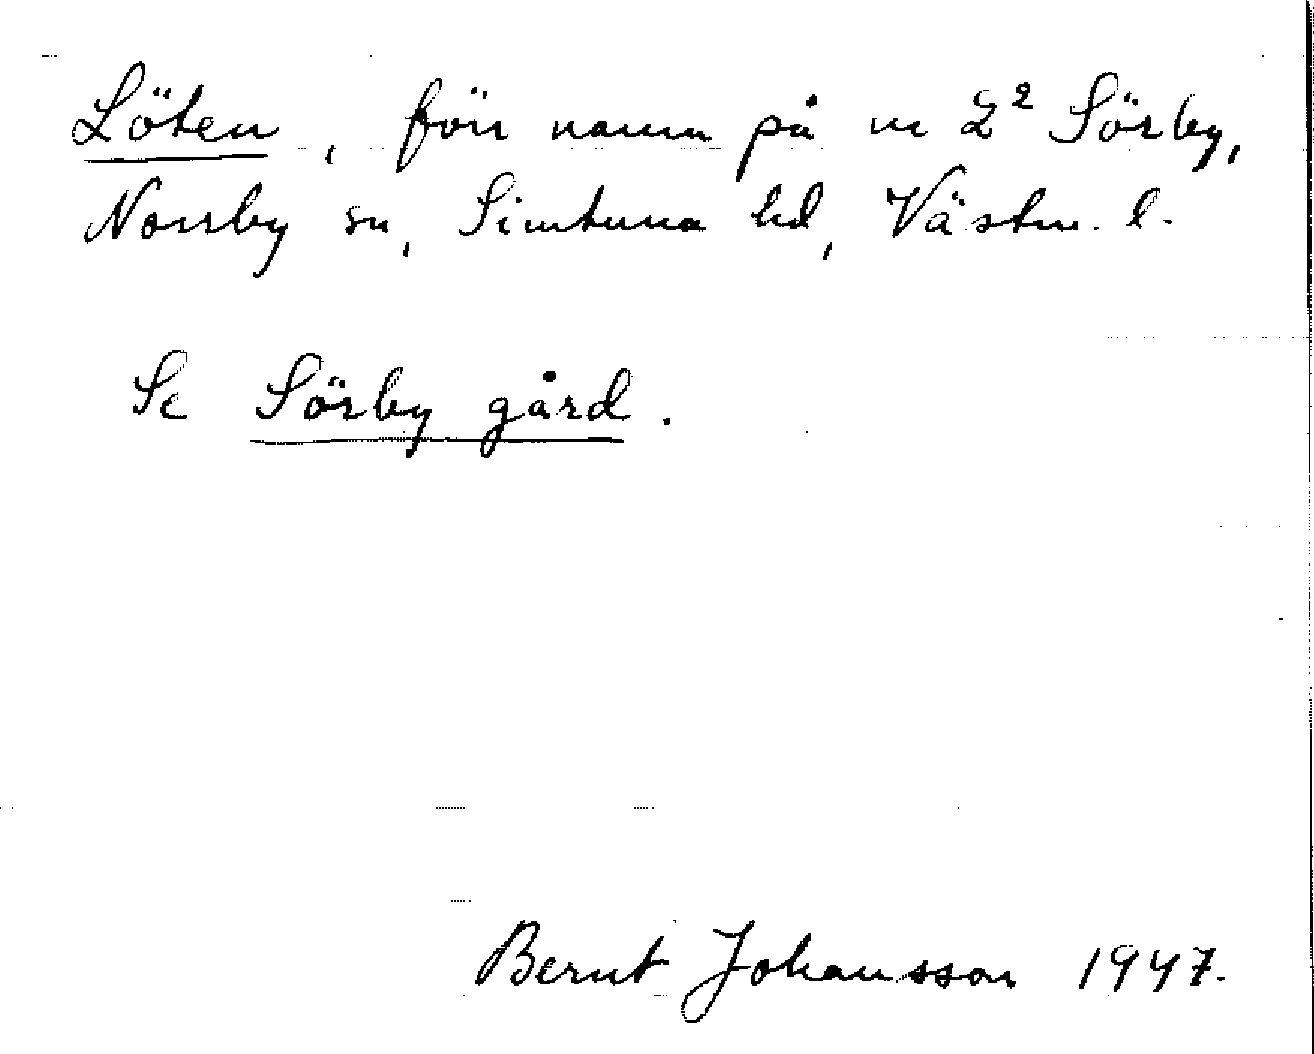 Löten, förr namn på nr 2² Sörby,
Norrby sn, Simtuna hd, Västm. l.
Se Sörby gård.
Bernt Johansson 1947.